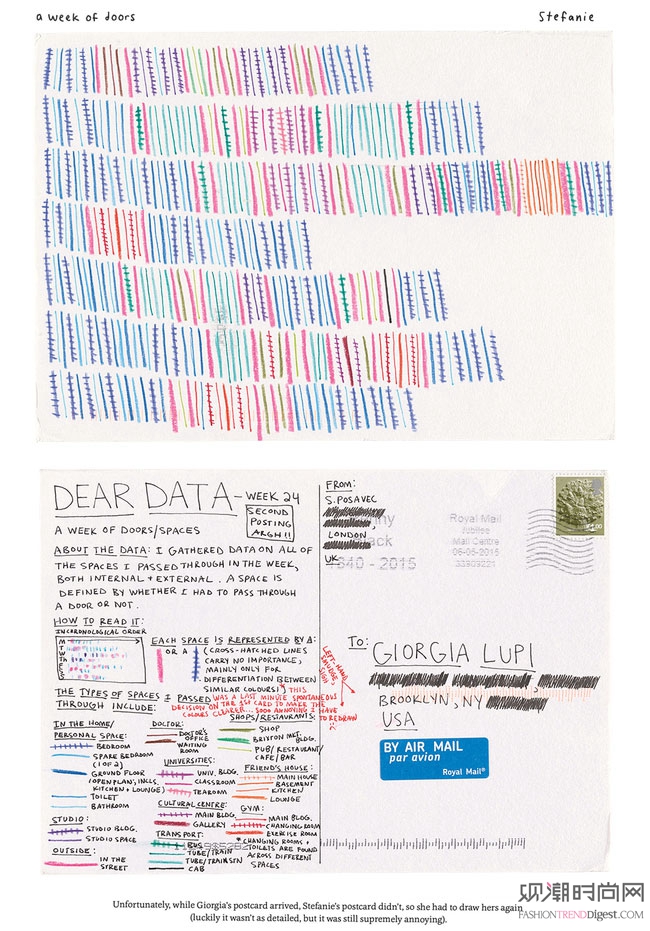 a week of doors
Stefanie
DEAR DATA - WEEK 24
SECOND
POSTING
ARGH!!
A WEEK OF DOORS/SPACES
ABOUT THE DATA: I GATHERED DATA ON ALL OF
THE SPACES I PASSED THROUGH IN THE WEEK,
BOTH INTERNAL + EXTERNAL. A SPACE IS
DEFINED BY WHETHER I HAD TO PASS THROUGH
A DOOR OR NOT.
HOW TO READ IT:
IN CHRONOLOGICAL ORDER
M
T
W
Th
F
S
S
EACH SPACE IS REPRESENTED BY A:
OR A
(CROSS-HATCHED LINES
CARRY NO IMPORTANCE,
MAINLY ONLY FOR
DIFFERENTIATION BETWEEN
SIMILAR COLOURS)
THIS
WAS A LAST MINUTE SPONTANEOUS
DECISION ON THE 1ST CARD TO MAKE THE
COLOURS CLEARER... SOOO ANNOYING I HAVE
TO REDRAW
LEFT-HAND
SIGH
THE TYPES OF SPACES I PASSED
THROUGH INCLUDE:
IN THE HOME/
PERSONAL SPACE:
BEDROOM
SPARE BEDROOM
(1 OF 2)
GROUND FLOOR
(OPEN PLAN, INCLS.
KITCHEN + LOUNGE)
TOILET
BATHROOM
STUDIO:
STUDIO BLDG.
STUDIO SPACE
OUTSIDE:
IN THE
STREET
DOCTOR:
DOCTOR'S
OFFICE
WAITING
ROOM
UNIVERSITIES:
UNIV. BLDG.
CLASSROOM
TEAROOM
CULTURAL CENTRE:
MAIN BLDG.
GALLERY
TRANSPORT:
BUS
TUBE/TRAIN
TUBE/TRAIN STN
CAB
SHOPS/RESTAURANTS:
SHOP
BRIXTON MKT.
BLDG.
PUB/RESTAURANT/
CAFE/BAR
FRIEND'S HOUSE:
MAIN HOUSE
BASEMENT
KITCHEN
LOUNGE
GYM:
MAIN BLDG.
CHANGING ROOM
EXERCISE ROOM
*CHANGING ROOMS +
TOILETS ARE FOUND
ACROSS DIFFERENT
SPACES
FROM:
S.POSAVEC
LONDON
UK
1840 - 2015
Royal Mail
Jubilee
Mail Centre
06-05-2015
TO:
GIORGIA LUPI
BROOKLYN, NY
USA
BY AIR MAIL
par avion
Royal Mail®
Unfortunately, while Giorgia's postcard arrived, Stefanie's postcard didn't, so she had to draw hers again
(luckily it wasn't as detailed, but it was still supremely annoying).
观潮时尚网
FASHIONTRENDDIGEST.COM